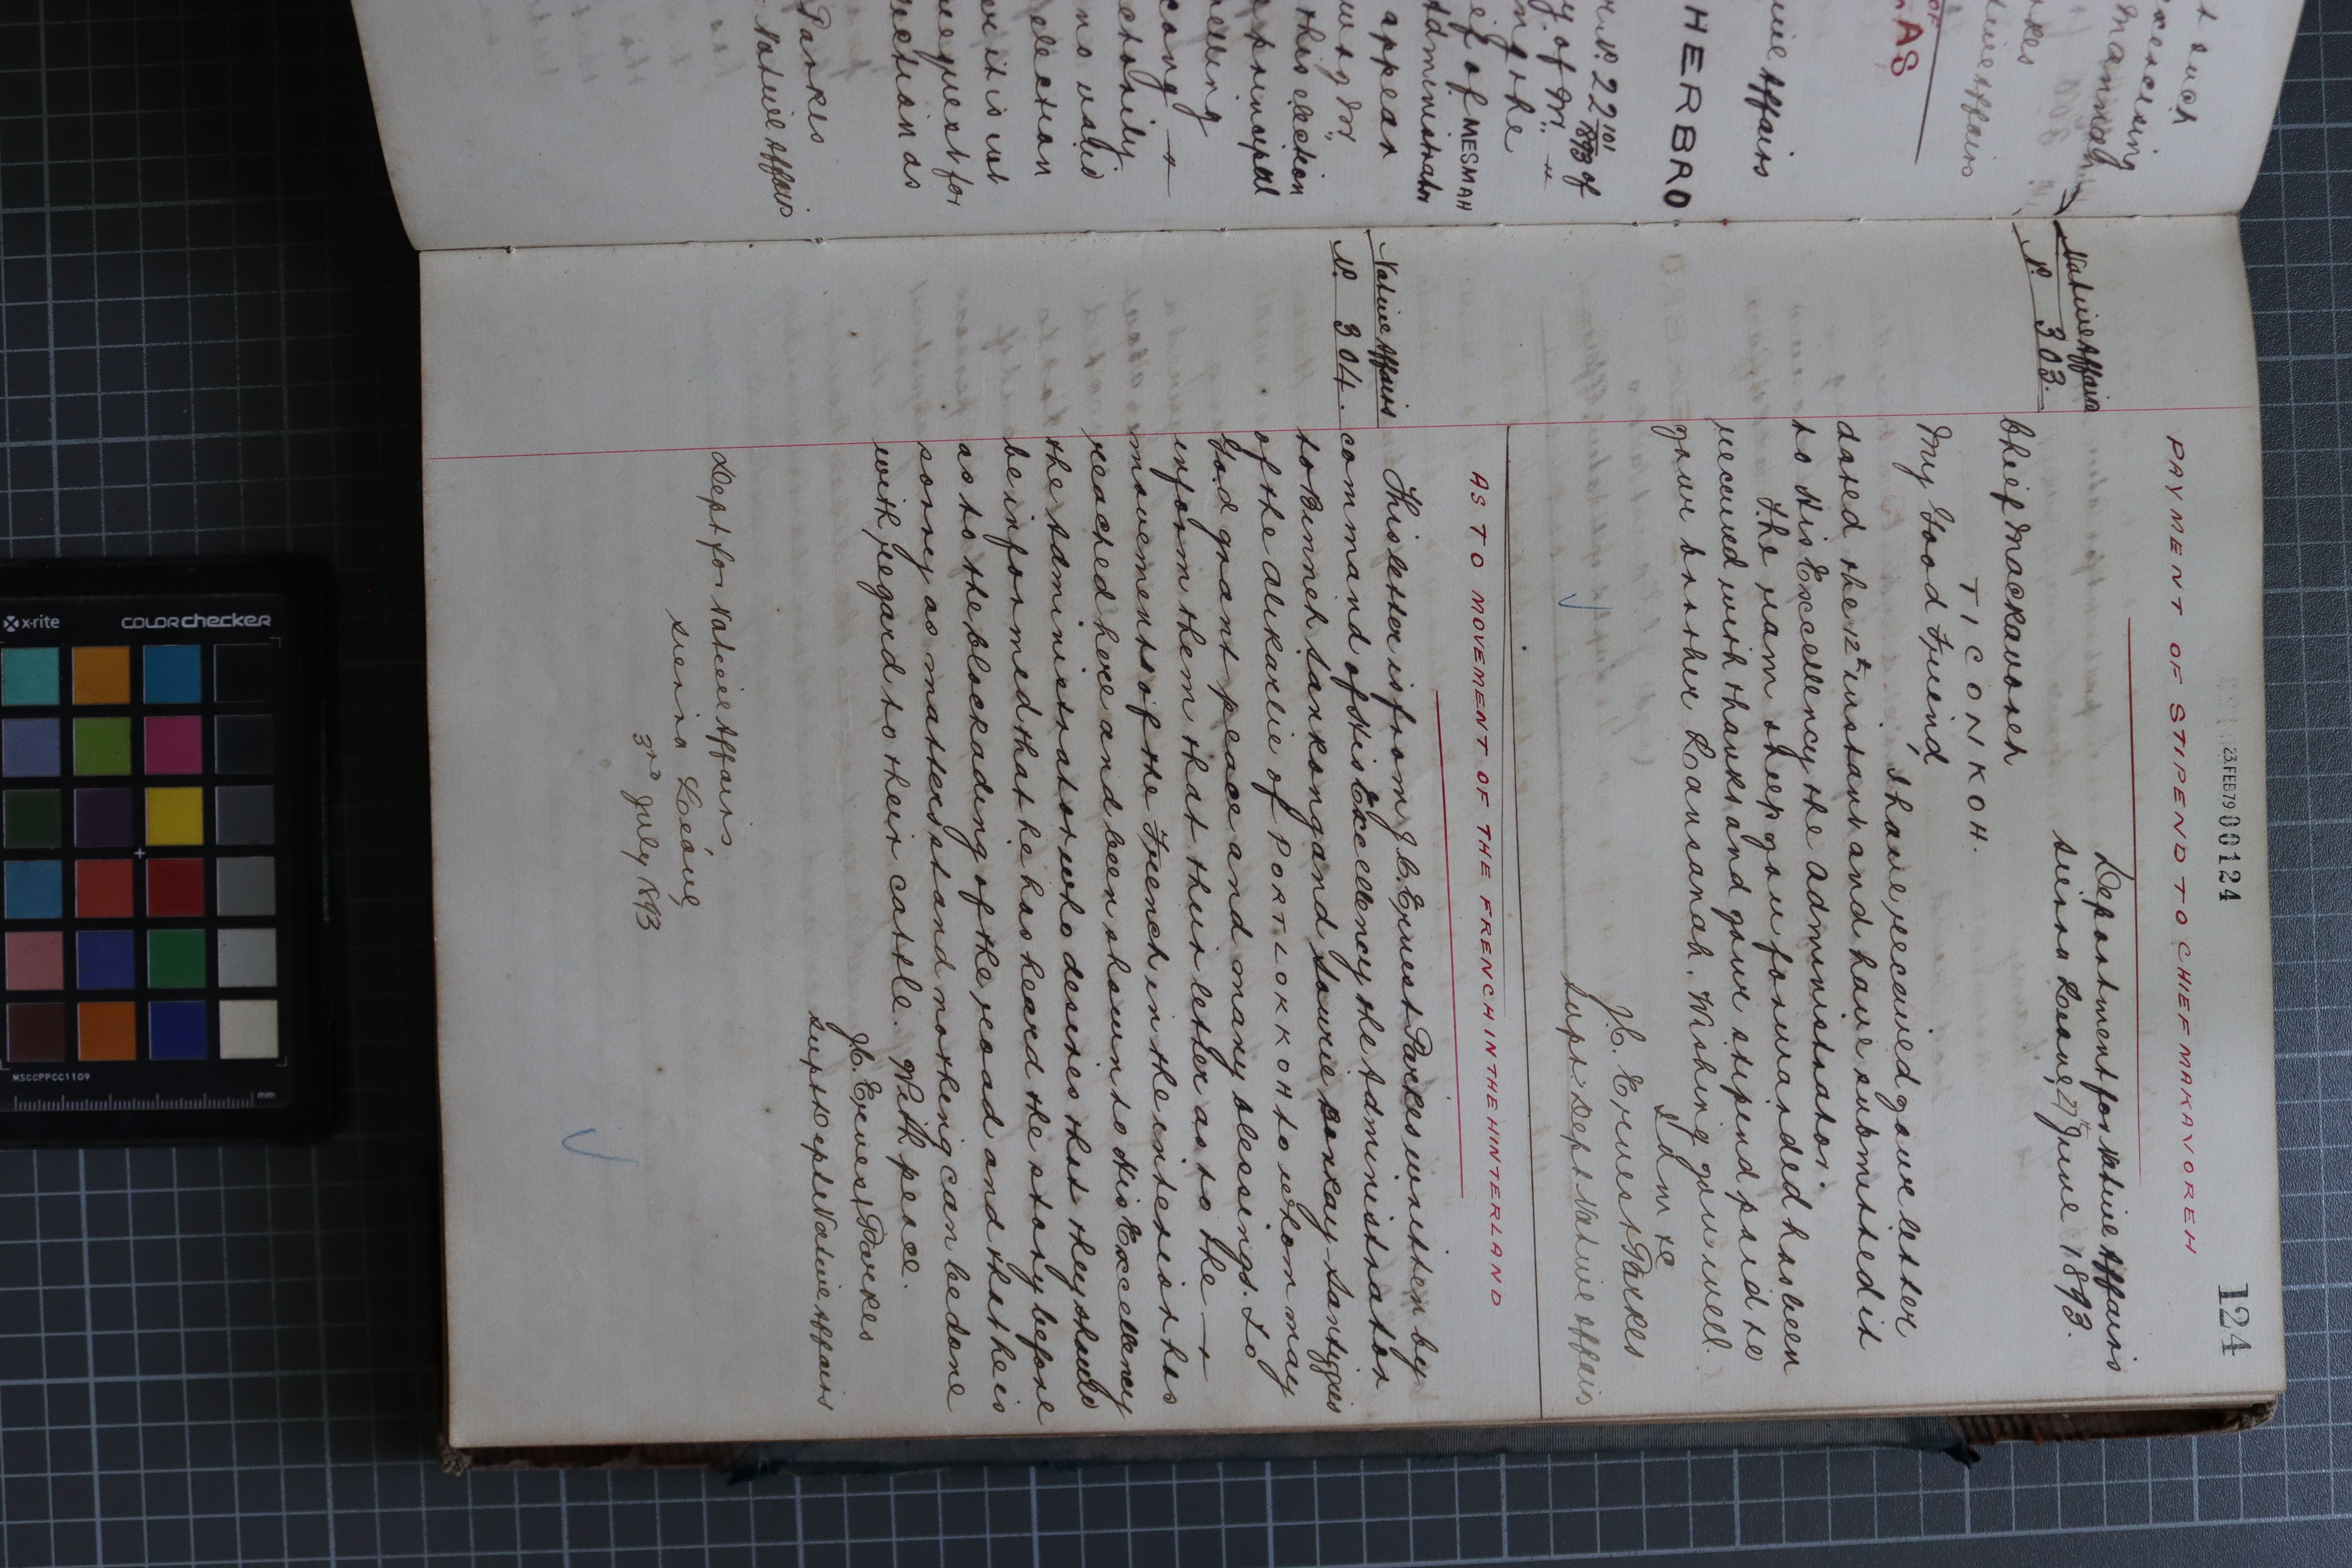 t such
exercising
Mannah
rkes
tive Affairs
OF
AS
ive Affairs
HERBRO
r No. 22 101/1893 of
y. of Mr "
ng the
ief of MESMAH
Administrator
appear
ung Mr
this election
e principal
elling
cong
ctorily
no valid
election
er it is not
request for
ection as
Parkes
Native Affairs
23.FEB79 000124
124
PAYMENT OF STIPEND TO CHIEF MAKAVOREH
Department for Native Affairs
Sierra Leone, 27th June 1893.
Native Affairs
No. 303.
Chief Mackavoreh
TICONKOH.
My Good Friend,
I have received your letter
dated the 12th instant and have submitted it
to His Excellency the Administrator.
The ram sheep you forwarded has been
received with thanks and your stipend paid to
your brother Lansanah. Wishing you well.
I am &c
J.C. Ernest Parkes
Supt: Dept Native Affairs
AS TO MOVEMENT OF THE FRENCH IN THE HINTERLAND
Native Affairs
No. 304.
This letter is from J.C. Ernest Parkes written by
command of His Excellency the Administrator
to Binneh Sankong and Sourie Bokkay - Santiggies
of the Alikarlie of PORTLOKKOH to whom may
God grant peace and many blessings. To
inform them that their letter as to the
movements of the French in the interior has
reached here and been shown to His Excellency
the Administrator who desires that they should
be informed that he has heard the story before
as to the blockading of the road and that he is
sorry as matters stand nothing can be done
with regard to their cattle. With peace.
J.C. Ernest Parkes
Supt Dept Native Affairs
Dept for Native Affairs
Sierra Leone,
3rd July 1893
x-rite
COLORchecker
MSCCPPCC1109
mm